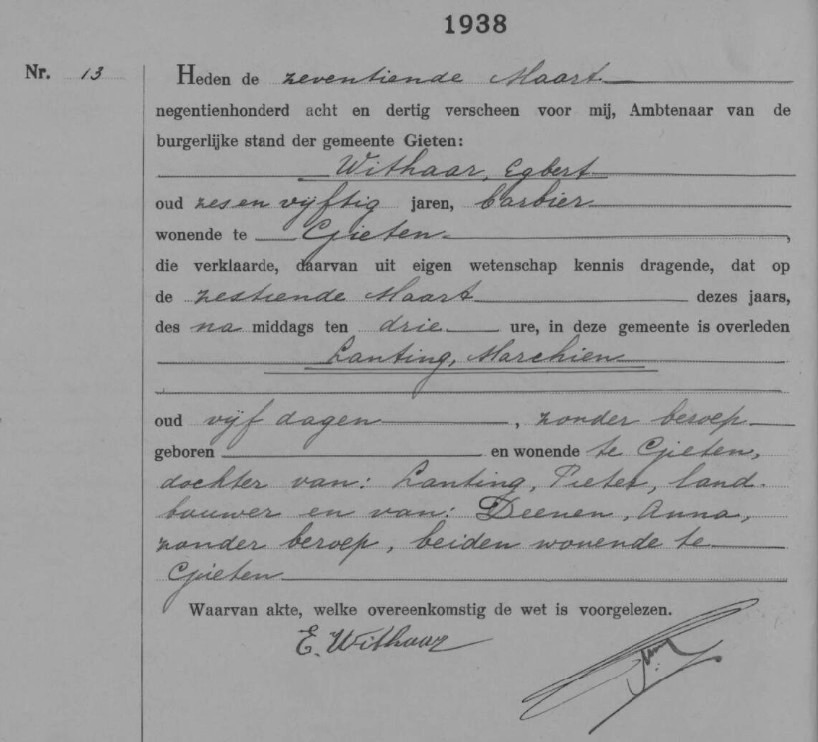 1938
Nr. 13
Heden de zeventiende Maart
negentienhonderd acht en dertig verscheen voor mij, Ambtenaar van de
burgerlijke stand der gemeente Gieten:
Withaar, Egbert
oud zes en vijftig jaren, barbier
wonende te Gieten,
die verklaarde, daarvan uit eigen wetenschap kennis dragende, dat op
de zestiende Maart dezes jaars,
des na middags ten drie ure, in deze gemeente is overleden
Lanting, Marchien
oud vijf dagen, zonder beroep
geboren en wonende te Gieten,
dochter van: Lanting, Pieter, land-
bouwer en van: Deenen, Anna,
zonder beroep, beiden wonende te
Gieten
Waarvan akte, welke overeenkomstig de wet is voorgelezen.
E. Withaar